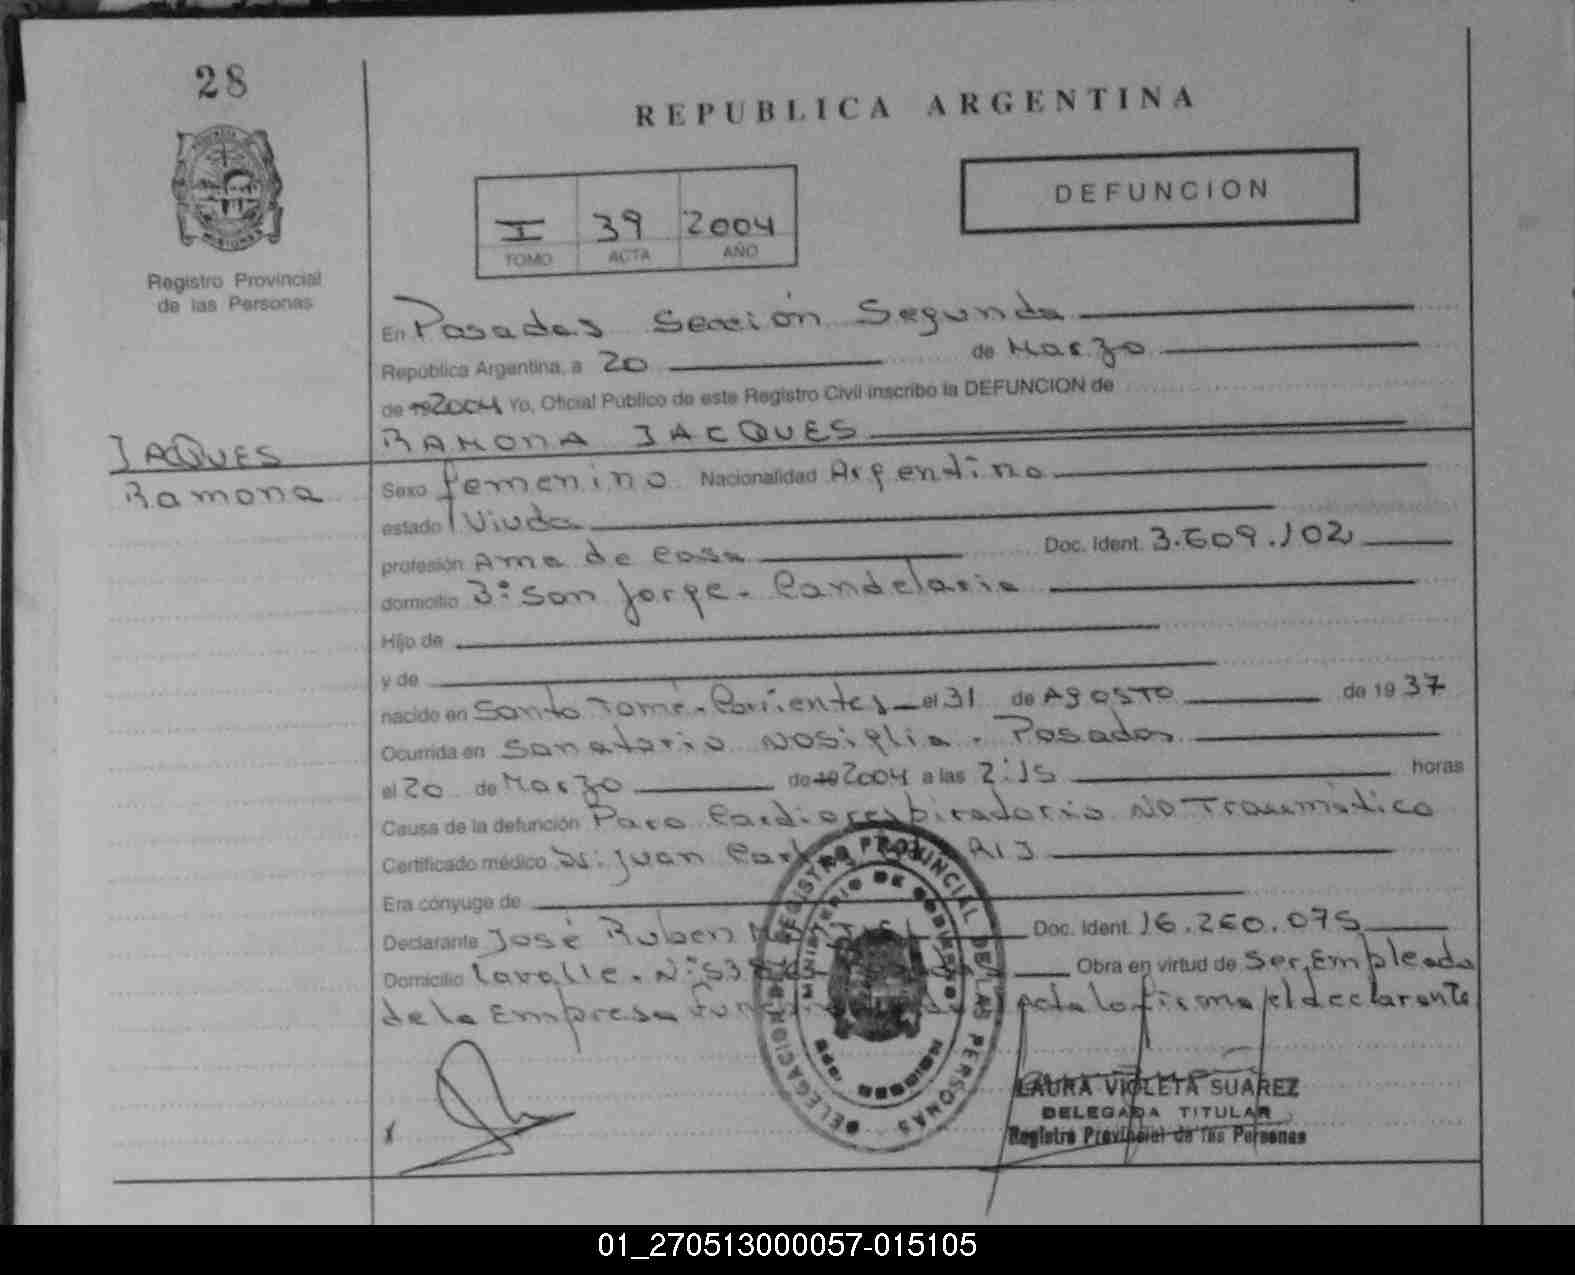 28
REPUBLICA ARGENTINA
DEFUNCION
I 39 2004
TOMO ACTA AÑO
Registro Provincial
de las Personas
En Posadas Sección Segunda
República Argentina, a 20 de Marzo
de 19 2004 Yo, Oficial Público de este Registro Civil inscribo la DEFUNCION de
RAMONA JACQUES
JAQUES
Ramona
Sexo femenino Nacionalidad Argentina
estado Viuda
profesión Ama de Casa Doc. Ident. 3.609.102
domicilio Bº San Jorge. Candelaria
Hijo de
y de
nacido en Santo Tomé. Corrientes el 31 de AGOSTO de 19 37
Ocurrida en Sanatorio Nosiglia. Posadas
el 20 de Marzo de 19 2004 a las 2:15 horas
Causa de la defunción Paro Cardiorespiratorio No Traumático
Certificado médico Dr: Juan
Era cónyuge de
Declarante José Ruben Doc. Ident. 16.260.075
Domicilio Lavalle. Nº Obra en virtud de Ser Empleado
de la Empresa Acta la firma el declarante
DELEGACION DEL REGISTRO PROVINCIAL DE LAS PERSONAS
MINISTERIO DE GOBIERNO
LAURA VIOLETA SUAREZ
DELEGADA TITULAR
Registro Provincial de las Personas
01_270513000057-015105